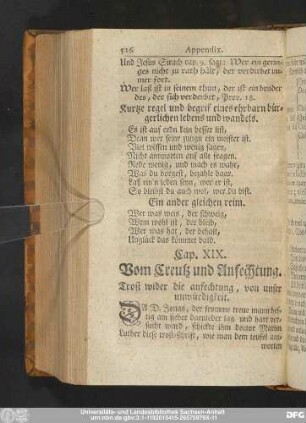 516 Appendix.
Und Jesus Sirach cap. 9. sagt: Wer ein gerin-
ges nicht zu rath hält, der verdirbet im-
mer fort.
Wer laß ist in seinem thun, der ist ein bruder
des, der sich verderbet, Prov. 18.
Kurtze regel und begrif eines ehrbarn bür-
gerlichen lebens und wandels.
Es ist auf erdn kein besser list,
Denn wer seiner zunge ein meister ist.
Viel wissen und wenig sagen,
Nicht antworten auf alle fragen.
Rede wenig, und mach es wahr,
Was du borgest, bezahle baar.
Laß ein'n jeden seyn, wer er ist,
So bleibst du auch wol, wer du bist.
Ein ander gleichen reim.
Wer was weis, der schweig,
Wem wohl ist, der bleib,
Wer was hat, der behalt,
Unglück das kömmet bald.
Cap. XIX.
Vom Creutz und Anfechtung.
Trost wider die anfechtung, von unser
unwürdigkeit.
DA D. Jonas, der fromme treue mann hef-
tig am fieber darnieder lag und hart ver-
sucht ward, schickte ihm doctor Martin
Luther diese trostschrift, wie man dem teufel ant-
worten
Universitäts- und Landesbibliothek Sachsen-Anhalt